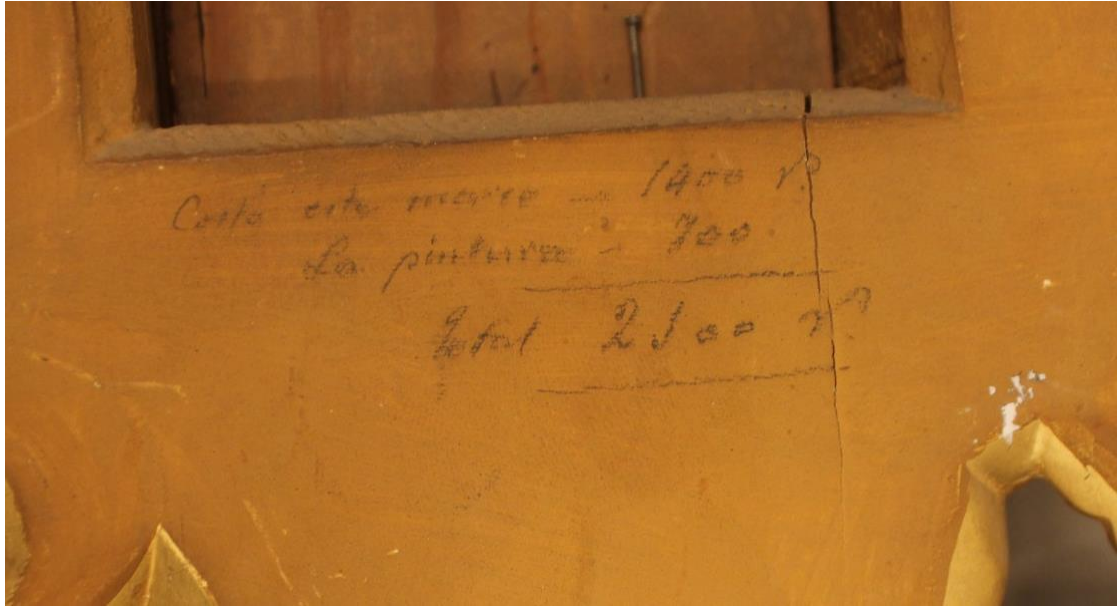 Costó este marco - 1400 r.s
La pintura - 700.
Total 2100 r.s